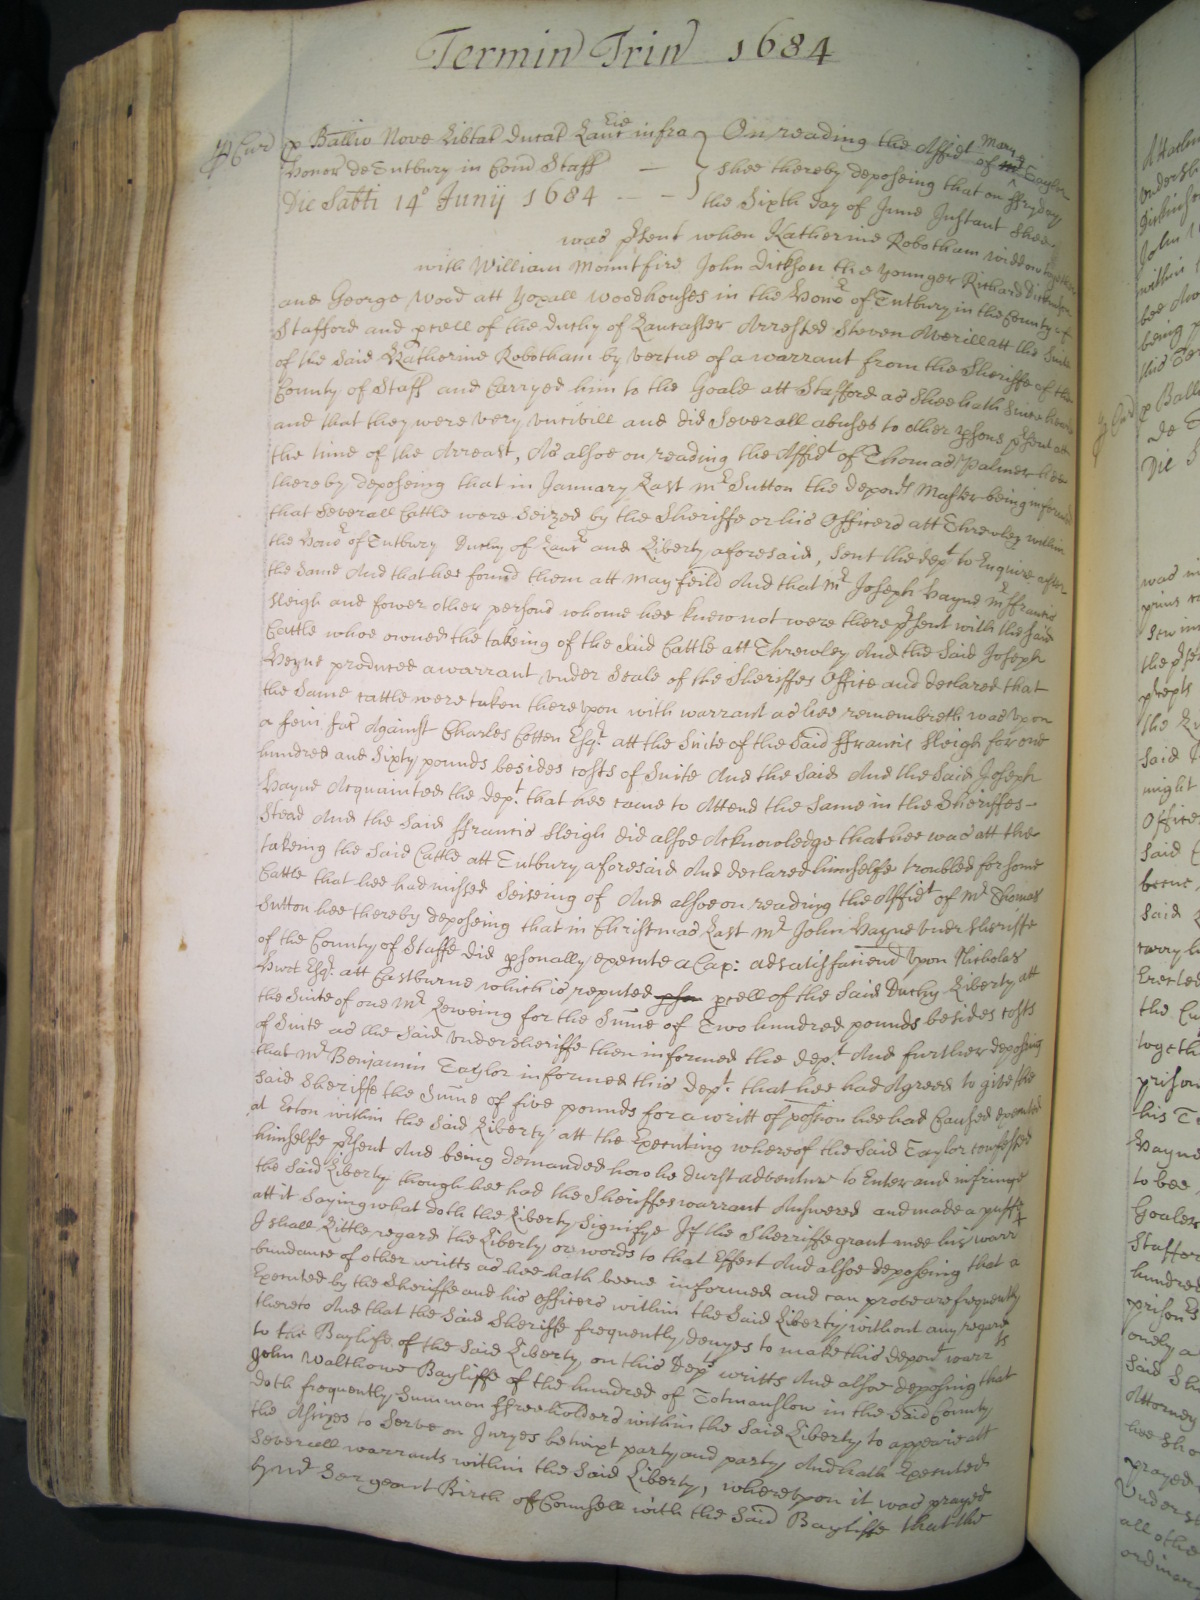 Termin Trin 1684
p Ballio Nove Libtat Ducat Lancie infra } On reading the Affidt of Mary Taylor
Honor de Tutbury in Com Staff — } shee thereby deposeing that on ffryday
Die Sabti 14o Junij 1684 — — } the Sixth day of June Instant shee
was psent when Katherine Robotham widdow together
with William Mountfird John Dickson the younger Richard Dickenson
and George Wood att Yoxall woodhouses in the Honor of Tutbury in the County of
Stafford and pcell of the Duchy of Lancaster Arrested Steven Averill att the Suite
of the said Katherine Robotham by vertue of a warrant from the Sheriffe of the
County of Staff and Carryed him to the Goale att Stafford as shee hath since heard
and that they were very uncivill and did Severall abuses to other psons psent at
the time of the Arreast, As alsoe on reading the Affidt of Thomas Palmer hee
thereby deposeing that in January Last mr Sutton the depon:ts Master being informed
that Severall Cattle were Seized by the Sheriffe or his Officers att Threwley within
the Honor of Tutbury Duchy of Lancr and Liberty aforesaid, sent the dept to Enquire after
the same And that hee found them att Mayfeild And that mr Joseph Hayne mr ffrancis
Sleigh and fower other persons whome hee knew not were there psent with the said
Cattle whoe owned the takeing of the said Cattle att Threwley And the Said Joseph
Heyne produced a warrant under Seale of the Sheriffes Office and declared that
the Same cattle were taken thereupon with warrant as hee remembreth was upon
a feiri fac Against Charles Cotten Esqr. att the Suite of the said ffrancis Sleigh for one
hundred and Sixty pounds besides costs of Suite And the said And the Said Joseph
Hayne Acquainted the dep:t that hee came to Attend the Same in the Sheriffes
Stead And the Said ffrancis Sleigh did alsoe Acknowledge that hee was att the
takeing the said Cattle att Tutbury aforesaid And declared himselfe troubled for some
Cattle that hee had missed Seiseing of And alsoe on reading the Affidt of mr Thomas
Sutton hee thereby deposeing that in Christmas Last mr John Hayne undersheriffe
of the County of Staffe did psonally execute a Cap: ad satisfaciend upon Nicholas
Hurt Esqr. att Castburne which is reputed pcell of the said Duchy Liberty att
the Suite of one mr Leweing for the Sume of Two hundred pounds besides costs
of Suite as the said undersheriffe then informed the dep:t And further deposing
that mr Benjamin Taylor informed this dep:t that hee had Agreed to give the
said Sheriffe the Sume of five pounds for a writt of possion hee had Caused executed
at Ecton within the said Liberty att the Executing whereof the said Taylor confessed
himselfe psent And being demanded how he durst adventure to Enter and infringe
the said Liberty though hee had the Sheriffes warrant Answered and made a puffe
att it Saying what doth the Liberty Signifye If the Sherriffe grant mee his warrt
I shall Little regard the Liberty or words to that Effect And alsoe deposeing that a
bundance of other writts as hee hath beene informed and can prove are frequently
Executed by the Sheriffe and his officers within the Said Liberty without any regard
thereto And that the Said Sheriffe frequently denyes to make this depont warrts
to the Bayliffe of the Said Liberty on this Depts writts And alsoe deposing that
John Walthowe Bayliffe of the hundred of Totmanslow in the said County
doth frequently Summon ffreeholders within the Said Liberty to appeare att
the Asizes to Serve on Juryes betwixt party and party And hath Executed
Severall warrants within the Said Liberty, whereupon it was prayed
by mr Sergeant Birch of Counsell with the Said Bayliffe that the